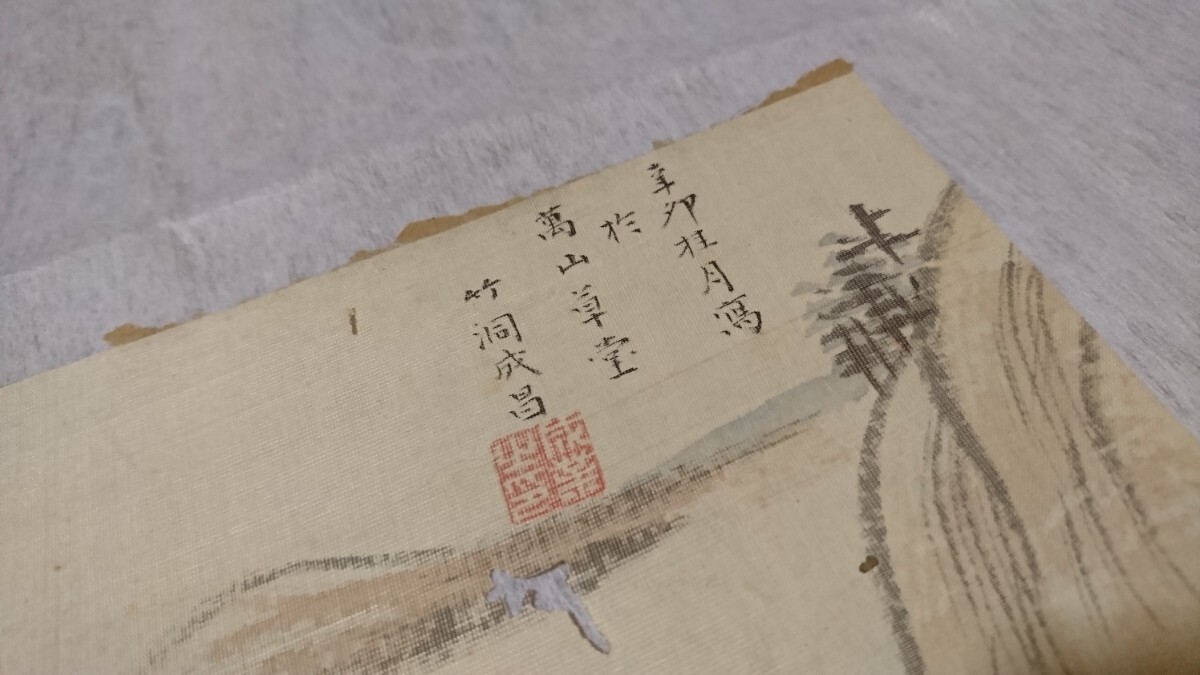 辛卯狂月寫
於
萬山草堂
竹洞成昌